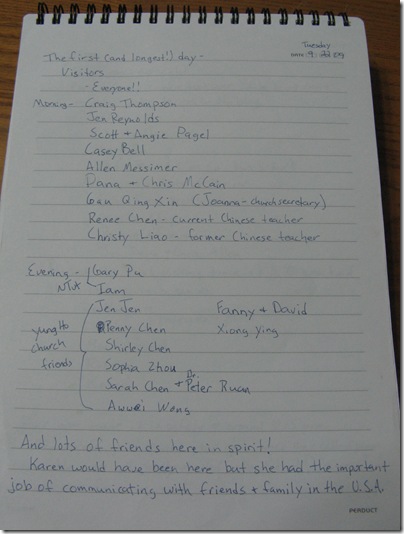 Tuesday
The first (and longest!) day -
Visitors
- Everyone!!
Morning - Craig Thompson
Jen Reynolds
Scott + Angie Pagel
Casey Bell
Allen Messimer
Dana + Chris McCain
Gau Qing Xin (Joanna - church secretary)
Renee Chen - current Chinese teacher
Christy Liao - former Chinese teacher
Evening - Gary Pu
Iam
Jen Jen Fanny + David
yung Ho Penny Chen Xiong Ying
church Shirley Chen
friends Sophia Zhou
Sarah Chen + Dr. Peter Ruan
Awwei Wong
And lots of friends here in spirit!
Karen would have been here but she had the important
job of communicating with friends + family in the U.S.A.